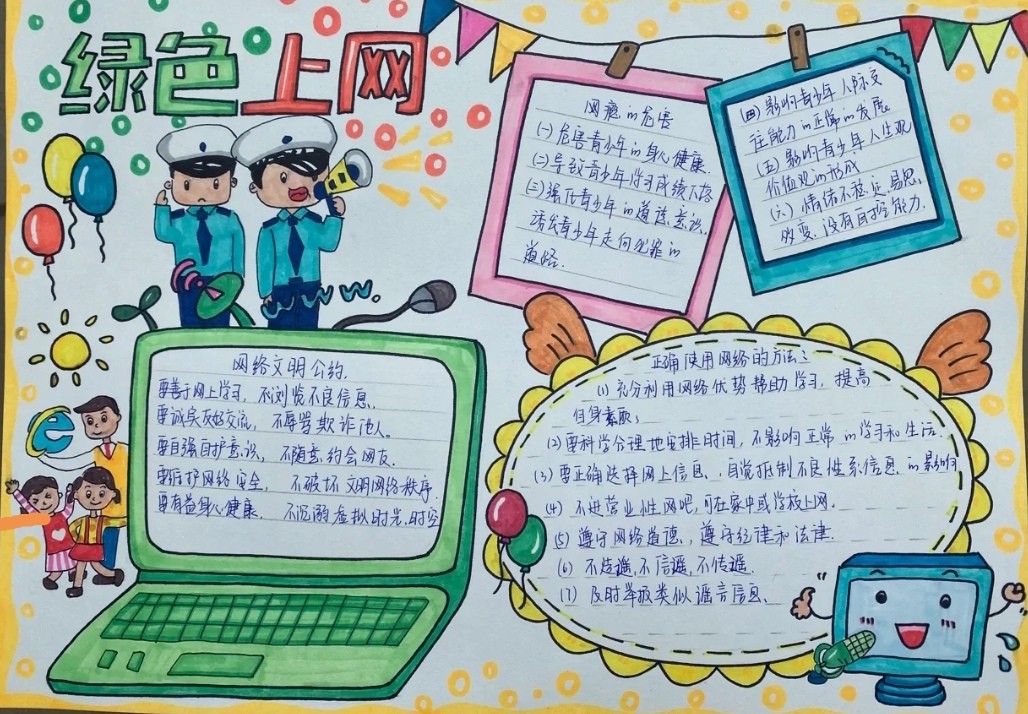 绿色上网
www.
e
网瘾的危害
(一)危害青少年的身心健康.
(二)导致青少年学习成绩下降
(三)弱化青少年的道德意识,
诱发青少年走向犯罪的
道路.
(四)影响青少年人际交
往能力的正常的发展
(五)影响青少年人生观
价值观的形成
(六)情绪不稳定.易怒,
多变.没有自控能力.
网络文明公约.
要善于网上学习, 不浏览不良信息.
要诚实友好交流, 不辱骂欺诈他人.
要自强自护意识, 不随意约会网友.
要维护网络安全, 不破坏文明网络秩序.
要有益身心健康. 不沉溺虚拟时光.时空
正确使用网络的方法:
(1)充分利用网络优势帮助学习,提高
自身素质;
(2)要科学合理地安排时间,不影响正常的学习和生活.
(3)要正确选择网上信息、自觉抵制不良性系信息的影响
(4) 不进营业性网吧,可在家中或学校上网.
(5) 遵守网络道德、遵守纪律和法律.
(6) 不造谣,不信谣,不传谣.
(7) 及时举报类似谣言信息.